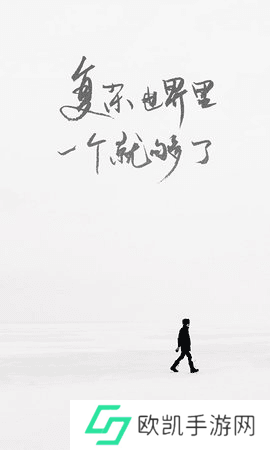 复杂世界里
一个就够了
欧凯手游网